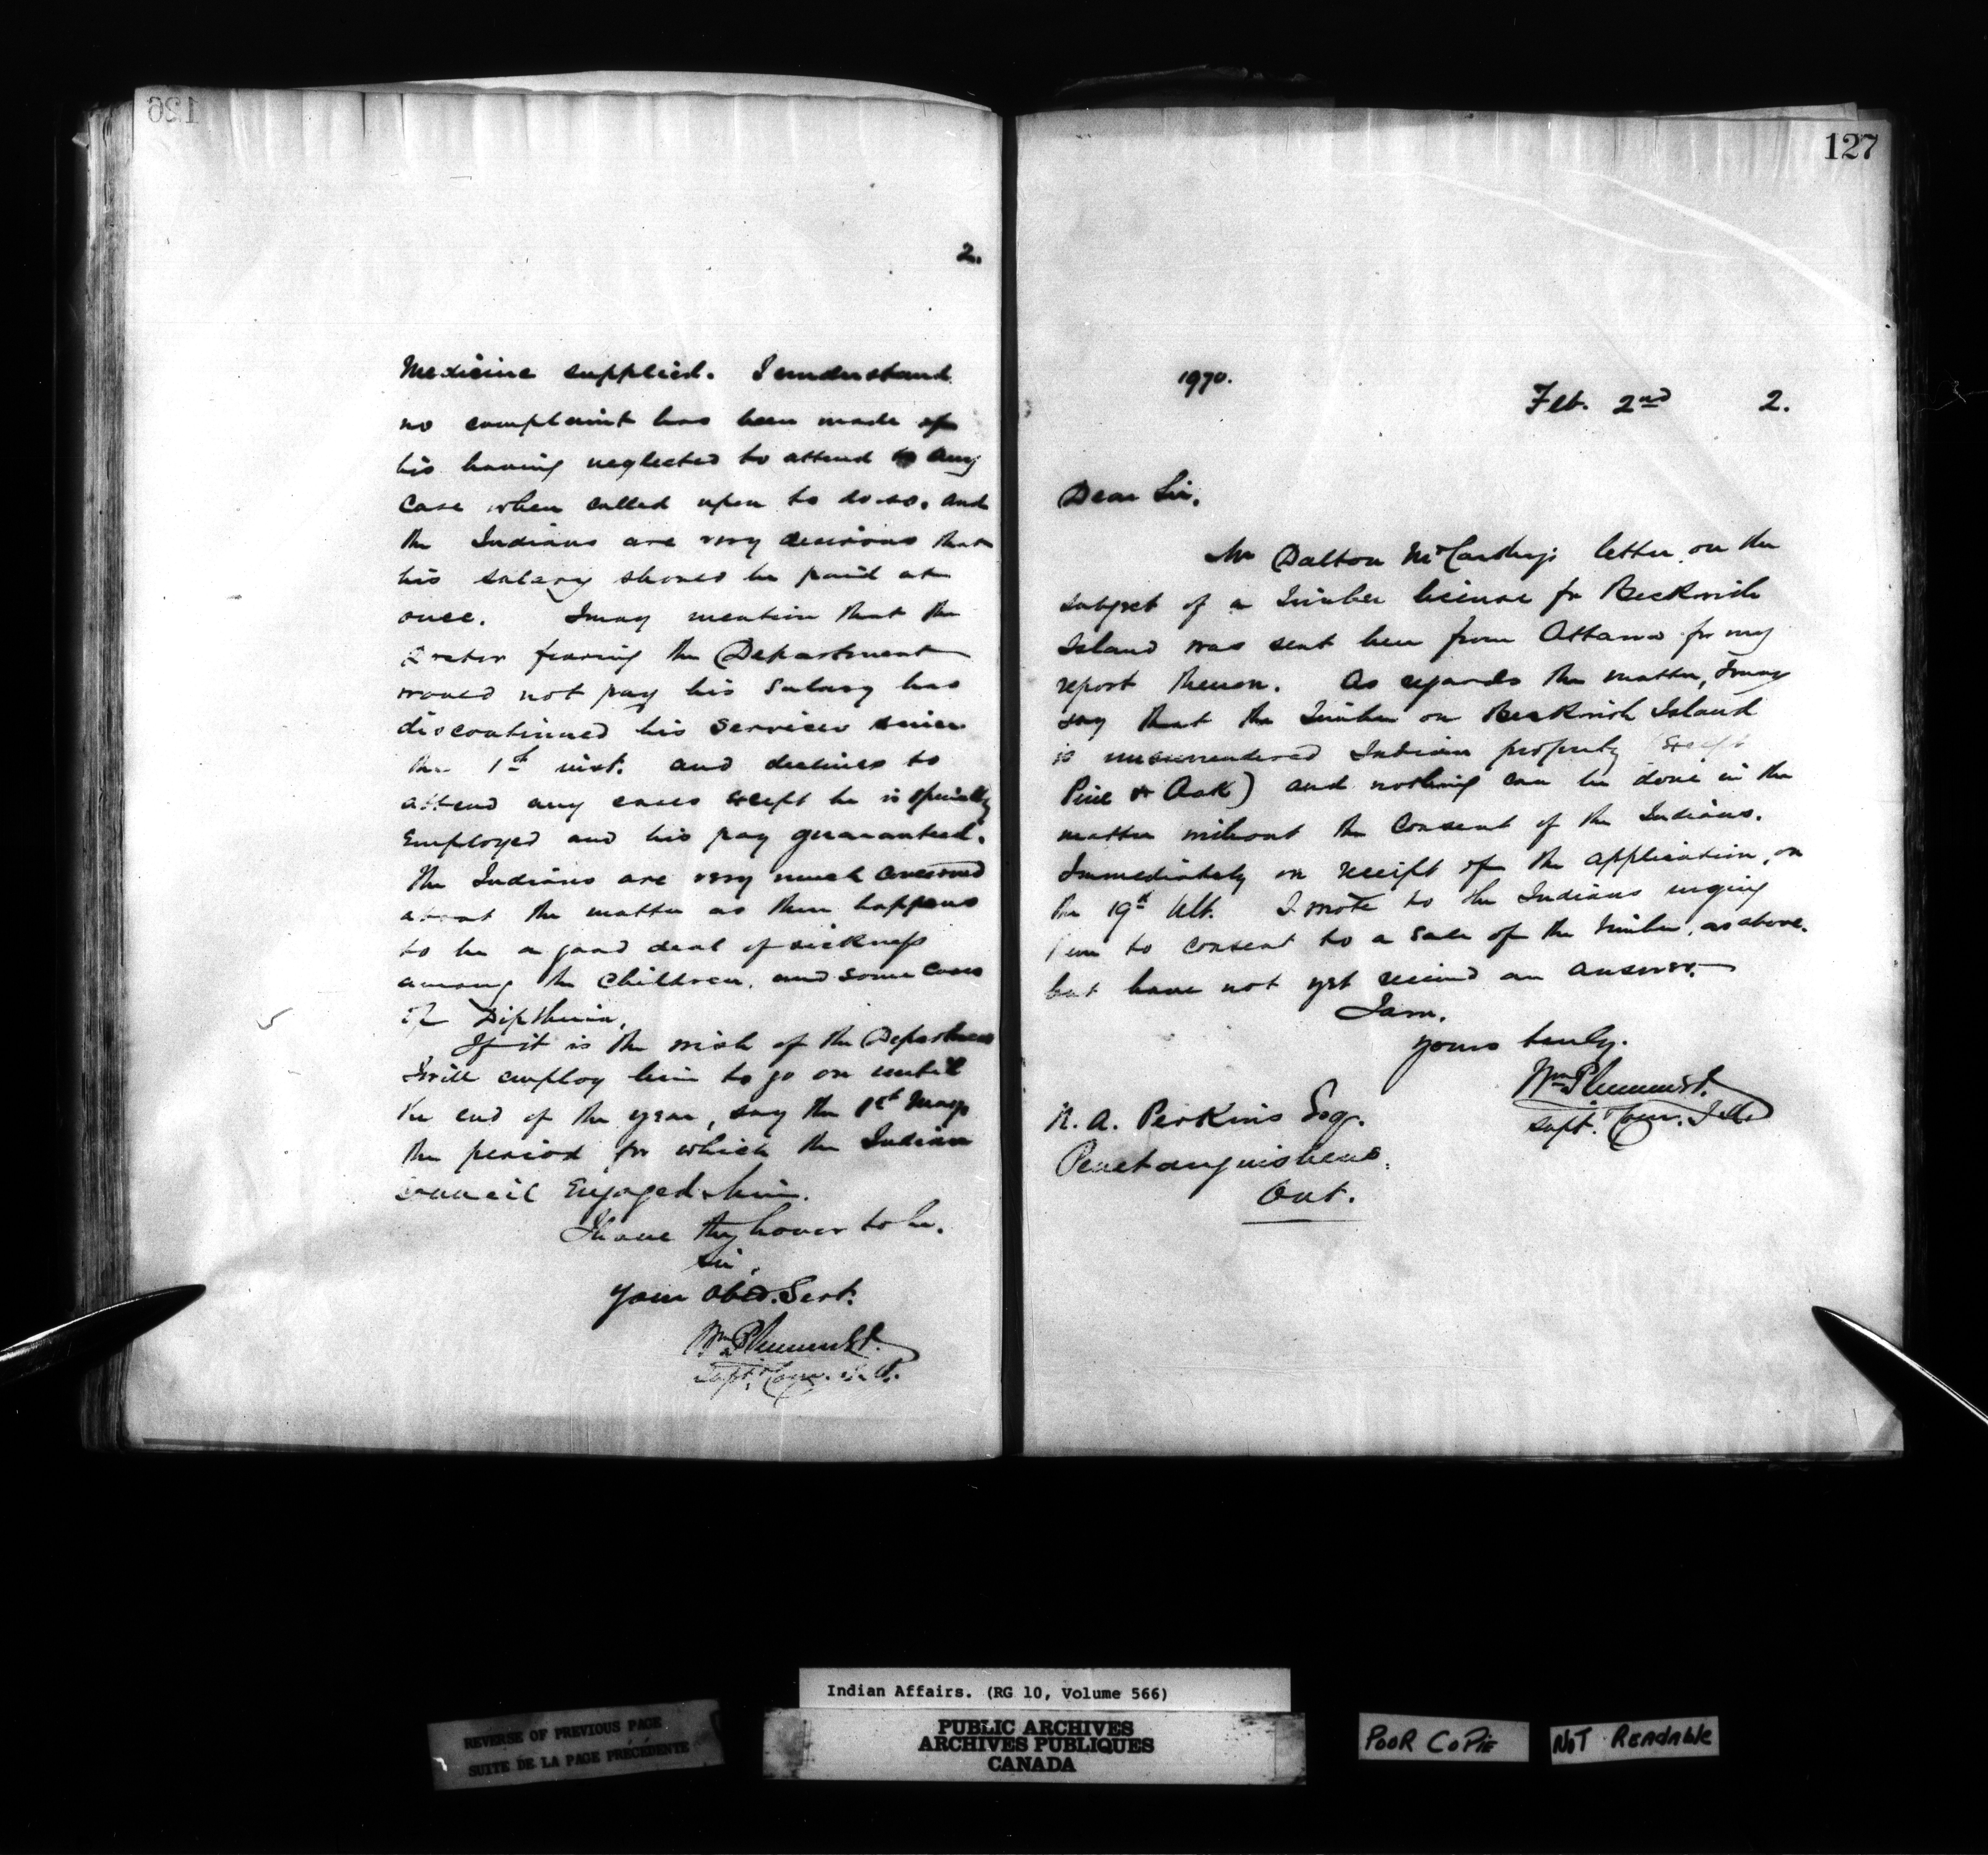 126
2.
Medicine supplied. I understand
no complaint has been made of
his having neglected to attend to any
case when called upon to do so, and
the Indians are very desirous that
his salary should be paid at
once. I may mention that the
Doctor fearing the Department
would not pay his Salary has
discontinued his services since
the 1st inst. and declines to
attend any cases except he is specially
Employed and his pay guaranteed.
The Indians are very much concerned
about the matter as there happens
to be a good deal of sickness
among the Children, and some cases
of Diptheria.
If it is the wish of the Department
I will employ him to go on until
the end of the year, say the 1st May
the period for which the Indian
Council Engaged him.
I have the honor to be,
Sir,
Your Obed. Sert.
Wm Plummer
Supt. Comr. I. A.
127
1970.
Feb. 2nd 2.
Dear Sir,
Mr Dalton McCarthy's letter on the
subject of a Timber license for Beckwith
Island was sent here from Ottawa for my
report thereon. As regards the matter, I may
say that the Timber on Beckwith Island
is unsurrendered Indian property (except
Pine & Oak) and nothing can be done in the
matter without the Consent of the Indians.
Immediately on receipt of the application, on
the 19th Ult. I wrote to the Indians urging
them to consent to a sale of the Timber, as above.
but have not yet received an answer.
I am,
yours truly.
Wm Plummer
Supt. Comr. I. A.
N. A. Perkins Esq.
Penetanguishene.
Ont.
Indian Affairs. (RG 10, Volume 566)
PUBLIC ARCHIVES
ARCHIVES PUBLIQUES
CANADA
REVERSE OF PREVIOUS PAGE
SUITE DE LA PAGE PRÉCÉDENTE
POOR COPIE
NOT READABLE